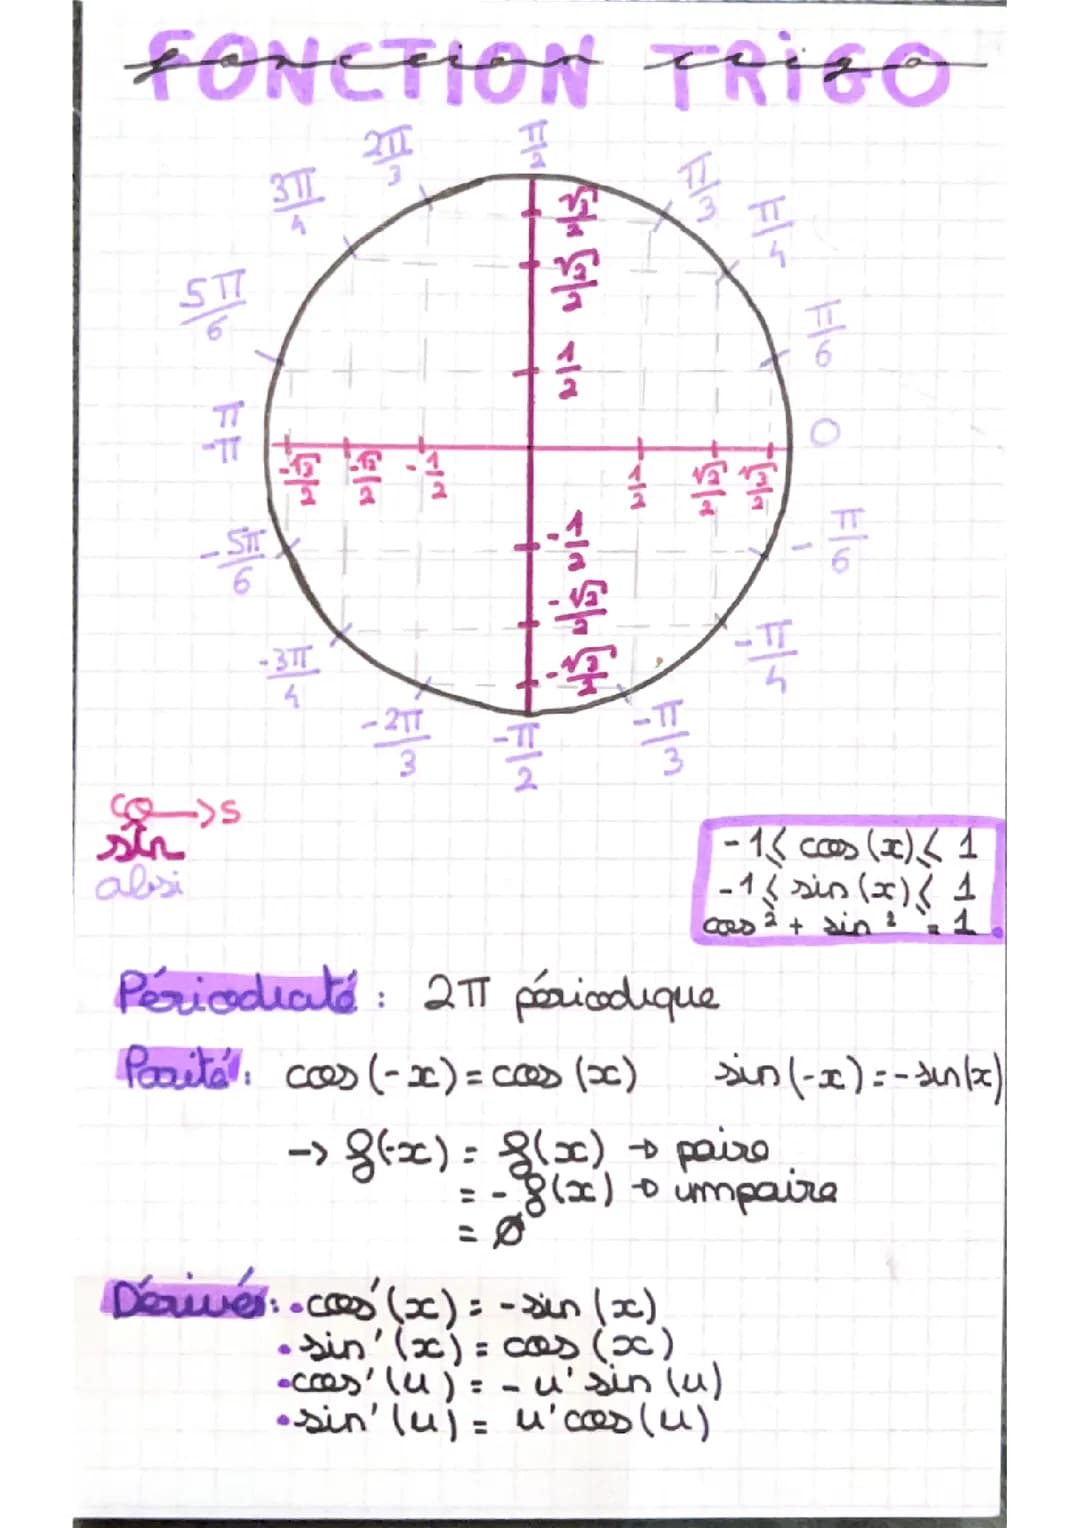 FONCTION TRIGO
fonction trigo
π/2
2π/3
π/3
3π/4
π/4
5π/6
π/6
π
-π
0
-5π/6
-π/6
-3π/4
-π/4
-2π/3
-π/2
-π/3
√3/2
√2/2
1/2
-√3/2 -√2/2 -1/2 1/2 √2/2 √3/2
-1/2
-√2/2
-√3/2
co→s
sin
absi
-1 ≤ cos(x) ≤ 1
-1 ≤ sin(x) ≤ 1
cos² + sin² = 1
Périodicité : 2π périodique
Parité : cos(-x) = cos(x) sin(-x) = -sin(x)
→ f(-x) = f(x) → paire
= -f(x) → impaire
= Ø
Dérivés : • cos'(x) = -sin(x)
• sin'(x) = cos(x)
• cos'(u) = -u' sin(u)
• sin'(u) = u' cos(u)